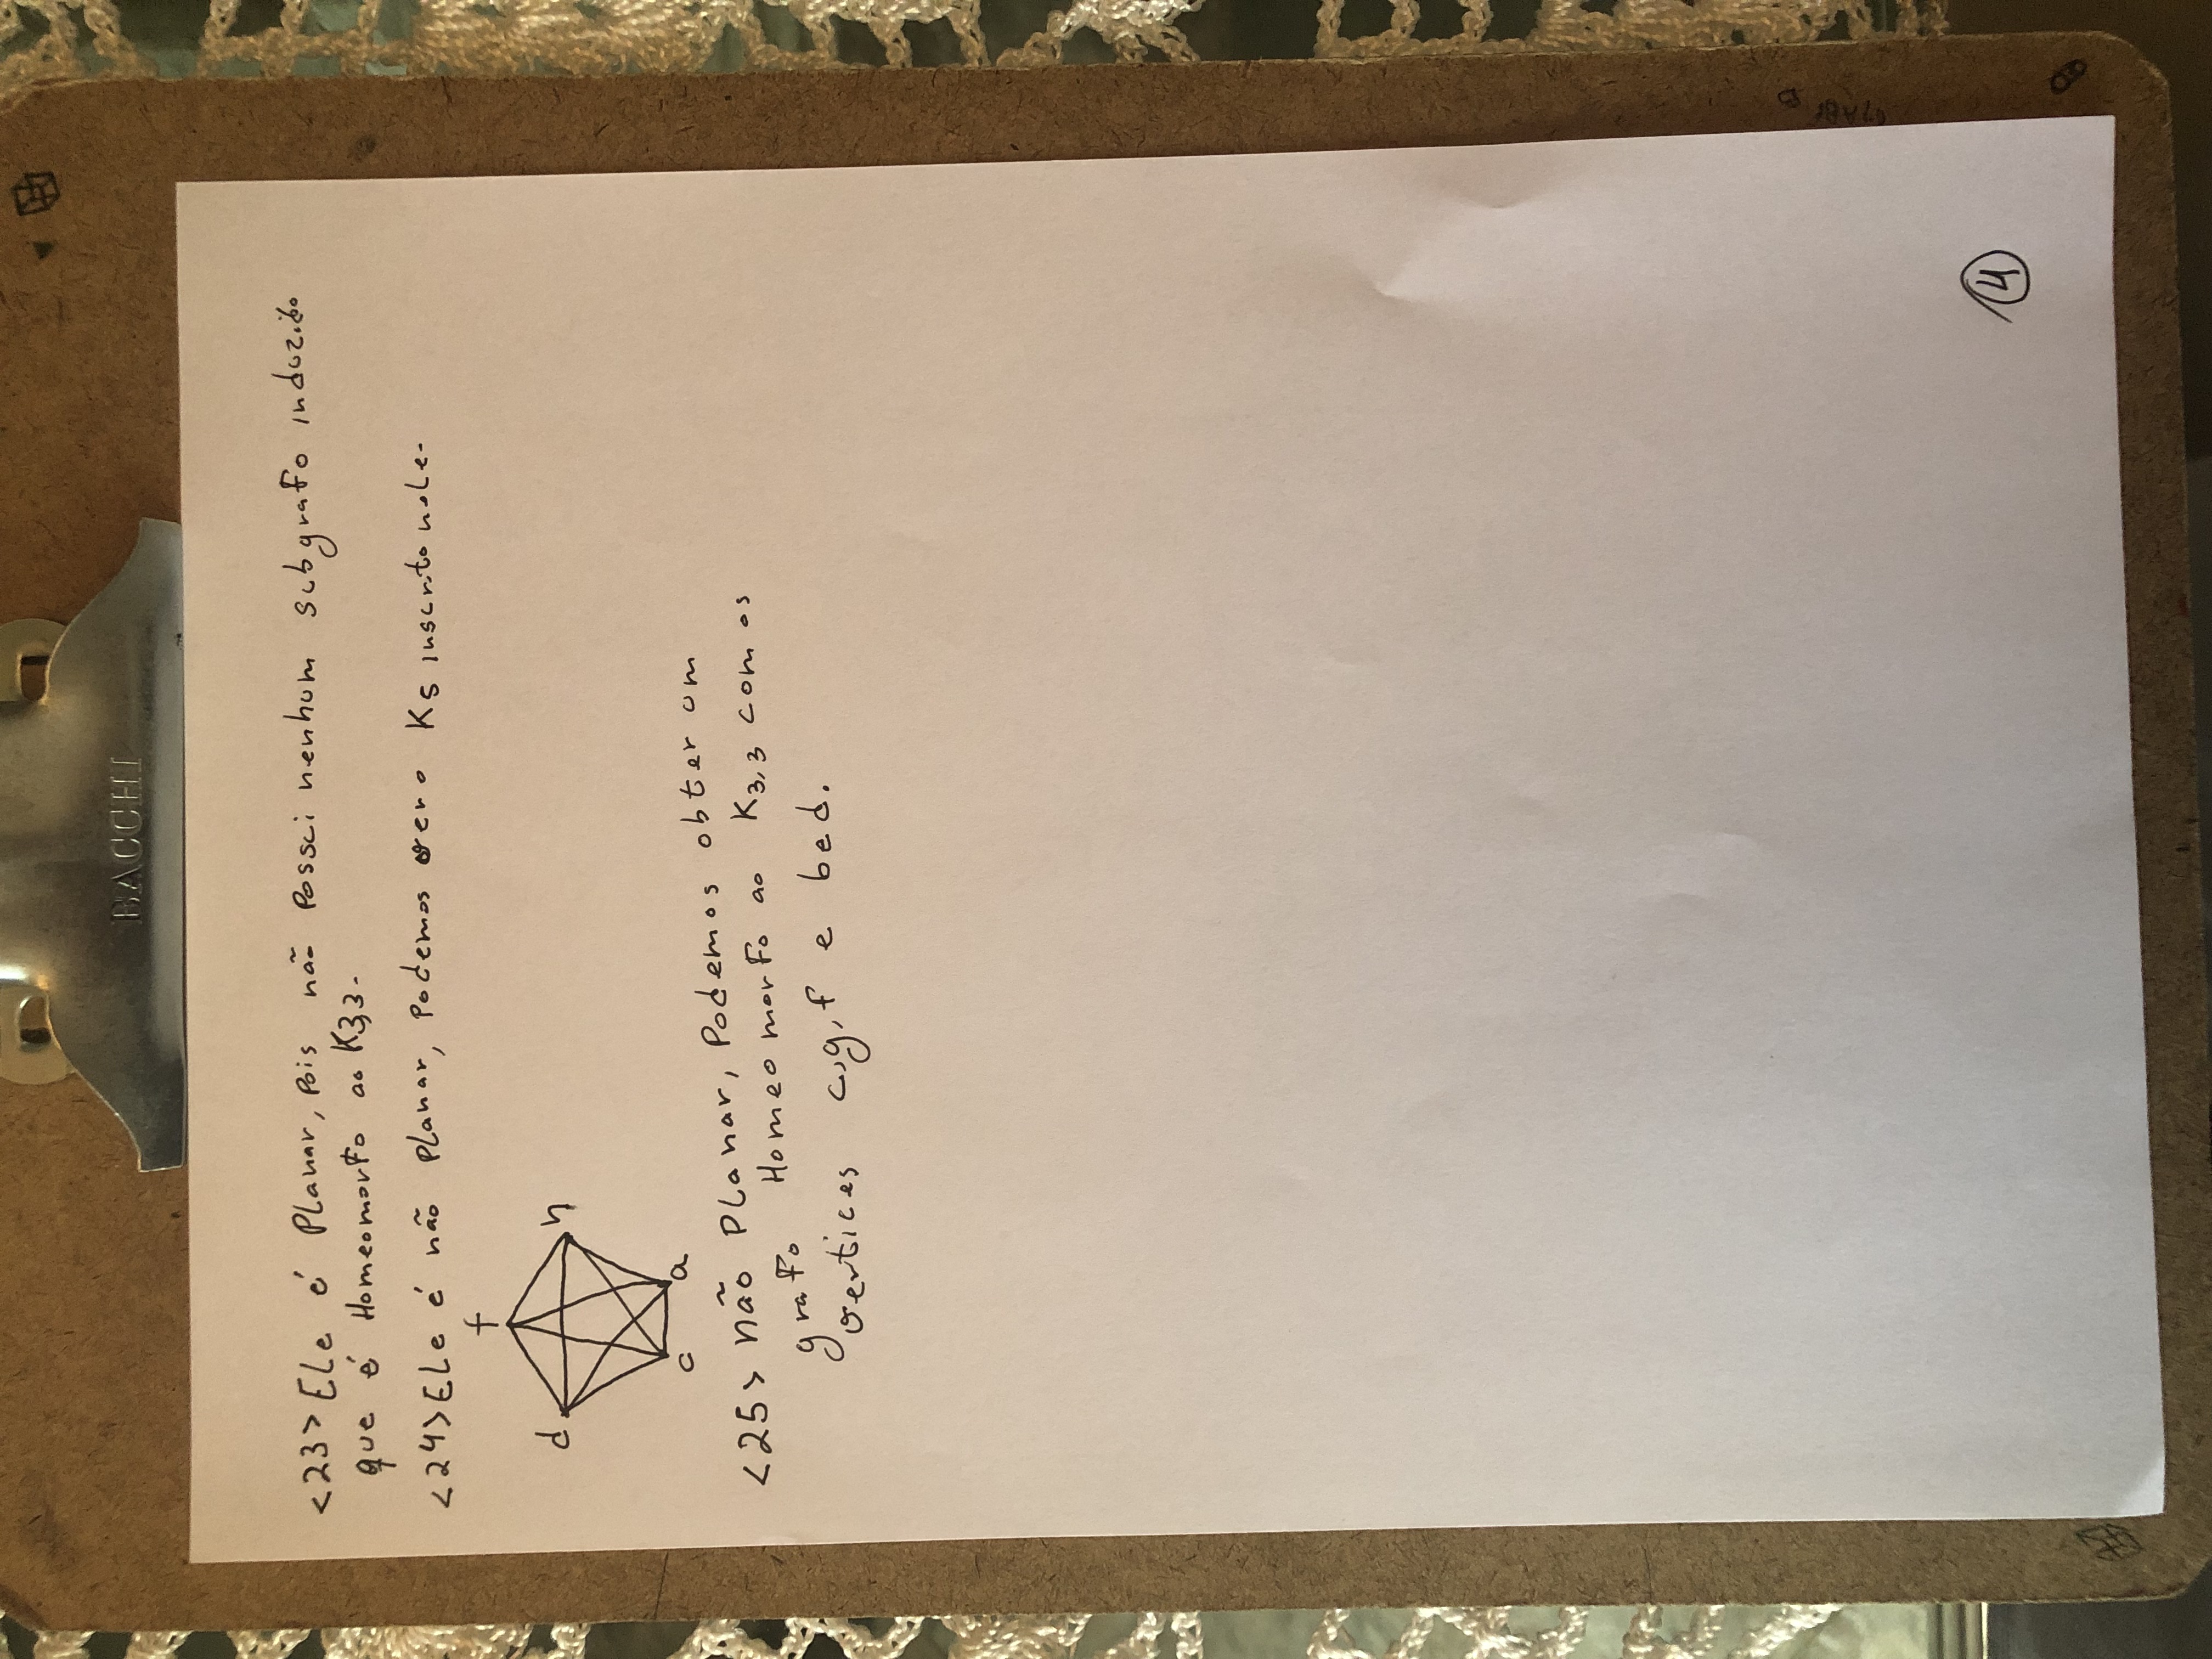 BACCHI
<23> Ele é Planar, Pois não Possui nenhum subgrafo induzido
que é Homeomorfo ao K3,3.
<24> Ele é não Planar, Podemos ver o K5 inscrito nele.
f
d h
c a
<25> não Planar, Podemos obter um
grafo Homeomorfo ao K3,3 com os
vertices c,g,f e bed.
4